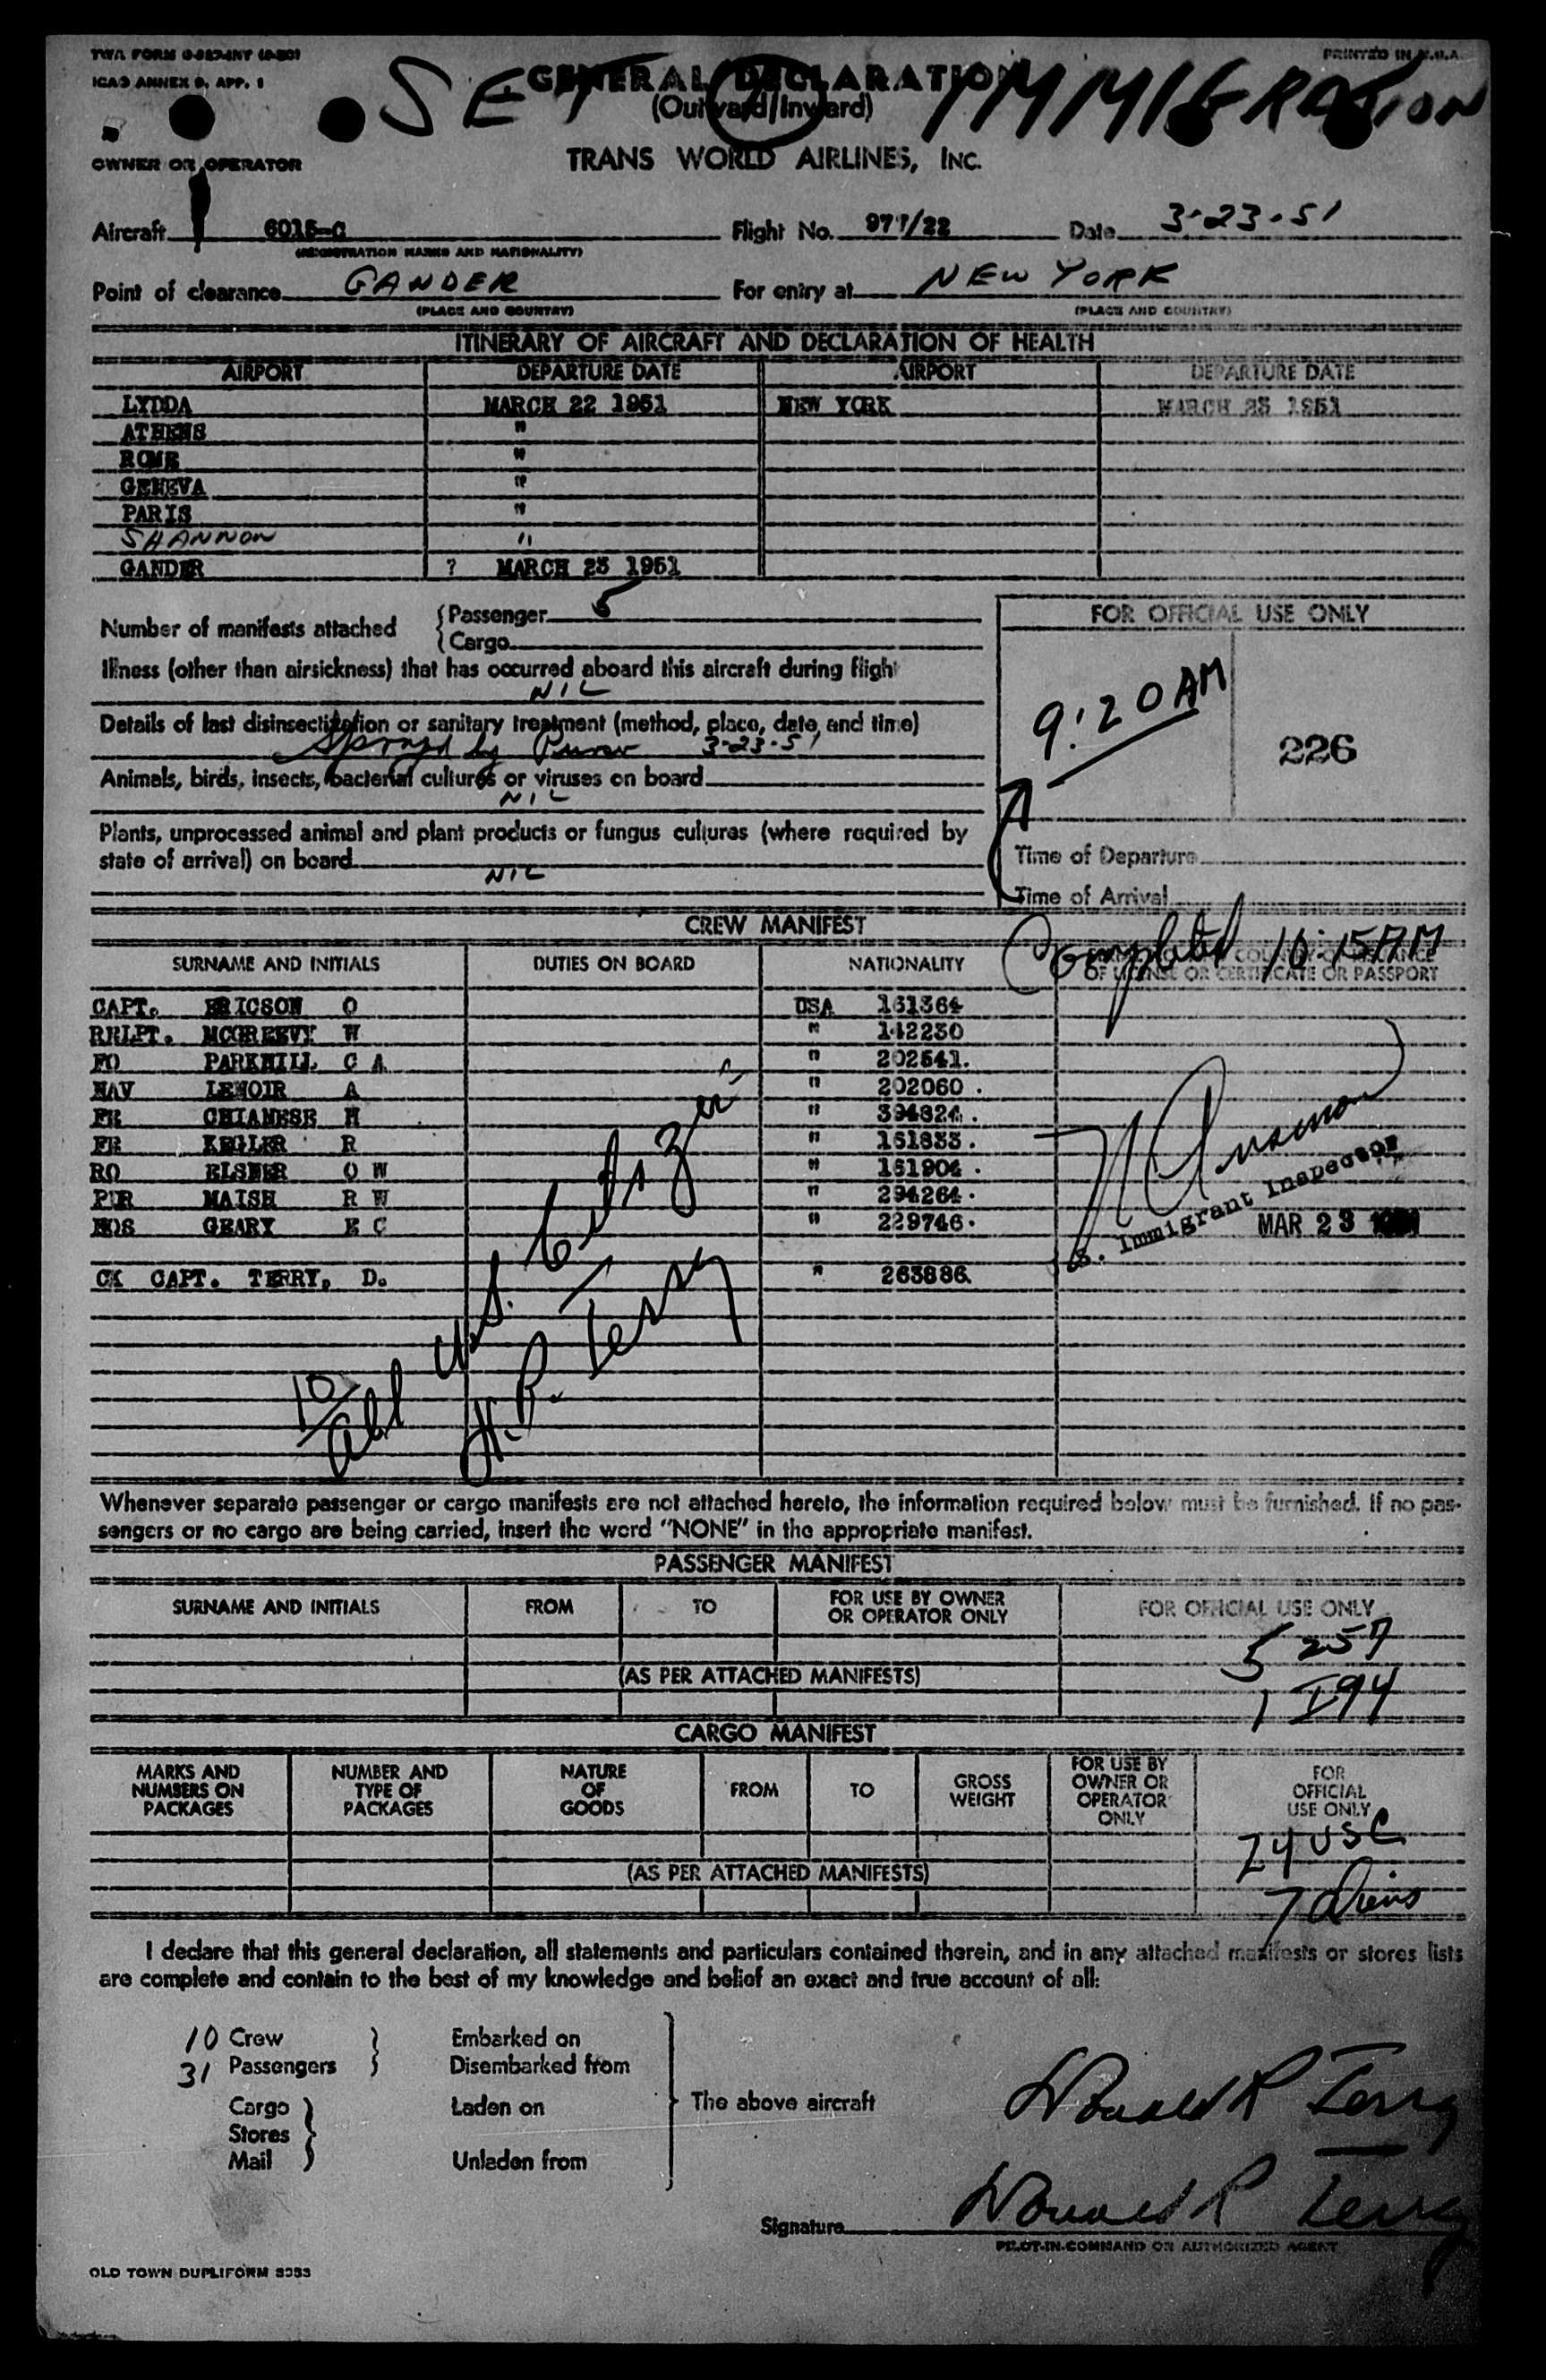 TWA FORM
ICAO ANNEX 9, APP. 1
PRINTED IN U.S.A.
SET IMMIGRATION
GENERAL DECLARATION
(Outward/Inward)
OWNER OR OPERATOR
TRANS WORLD AIRLINES, INC.
Aircraft 6015-C Flight No. 977/22 Date 3-23-51
(REGISTRATION MARKS AND NATIONALITY)
Point of clearance GANDER For entry at NEW YORK
(PLACE AND COUNTRY) (PLACE AND COUNTRY)
ITINERARY OF AIRCRAFT AND DECLARATION OF HEALTH
AIRPORT DEPARTURE DATE AIRPORT DEPARTURE DATE
LYDDA MARCH 22 1951 NEW YORK MARCH 23 1951
ATHENS "
ROME "
GENEVA "
PARIS "
SHANNON "
GANDER ? MARCH 23 1951
Number of manifests attached { Passenger 5
{ Cargo
FOR OFFICIAL USE ONLY
Illness (other than airsickness) that has occurred aboard this aircraft during flight
NIL
Details of last disinsectization or sanitary treatment (method, place, date, and time)
Sprayed by Purser 3-23-51
9:20AM
226
Animals, birds, insects, bacterial cultures or viruses on board
NIL
Plants, unprocessed animal and plant products or fungus cultures (where required by
state of arrival) on board
NIL
Time of Departure
Time of Arrival
CREW MANIFEST
Completed 10:15AM
SURNAME AND INITIALS DUTIES ON BOARD NATIONALITY OF LICENSE OR CERTIFICATE OR PASSPORT
CAPT. ERICSON O USA 161364
RRLPT. MCGREEVY W " 142230
FO PARKHILL C A " 202541.
NAV LENOIR A " 202060.
FR CHIANESE H " 394824.
FR KEGLER R " 151833.
RO ELSNER O W " 151904.
PUR MAISH R W " 294264.
HOS GEARY E C " 229746.
U.S. Immigrant Inspector
MAR 23
CK CAPT. TERRY, D. " 263886.
10/All U.S. Citizen
Terry
Whenever separate passenger or cargo manifests are not attached hereto, the information required below must be furnished. If no pas-
sengers or no cargo are being carried, insert the word "NONE" in the appropriate manifest.
PASSENGER MANIFEST
SURNAME AND INITIALS FROM TO FOR USE BY OWNER OR OPERATOR ONLY FOR OFFICIAL USE ONLY
5 257
(AS PER ATTACHED MANIFESTS)
1 I94
CARGO MANIFEST
MARKS AND NUMBERS ON PACKAGES NUMBER AND TYPE OF PACKAGES NATURE OF GOODS FROM TO GROSS WEIGHT FOR USE BY OWNER OR OPERATOR ONLY FOR OFFICIAL USE ONLY
24 USC
(AS PER ATTACHED MANIFESTS)
7
I declare that this general declaration, all statements and particulars contained therein, and in any attached manifests or stores lists
are complete and contain to the best of my knowledge and belief an exact and true account of all:
10 Crew } Embarked on
31 Passengers } Disembarked from
Cargo } Laden on The above aircraft
Stores }
Mail } Unladen from
Donald R Terry
Signature Donald R Terry
PILOT-IN-COMMAND OR AUTHORIZED AGENT
OLD TOWN DUPLIFORM